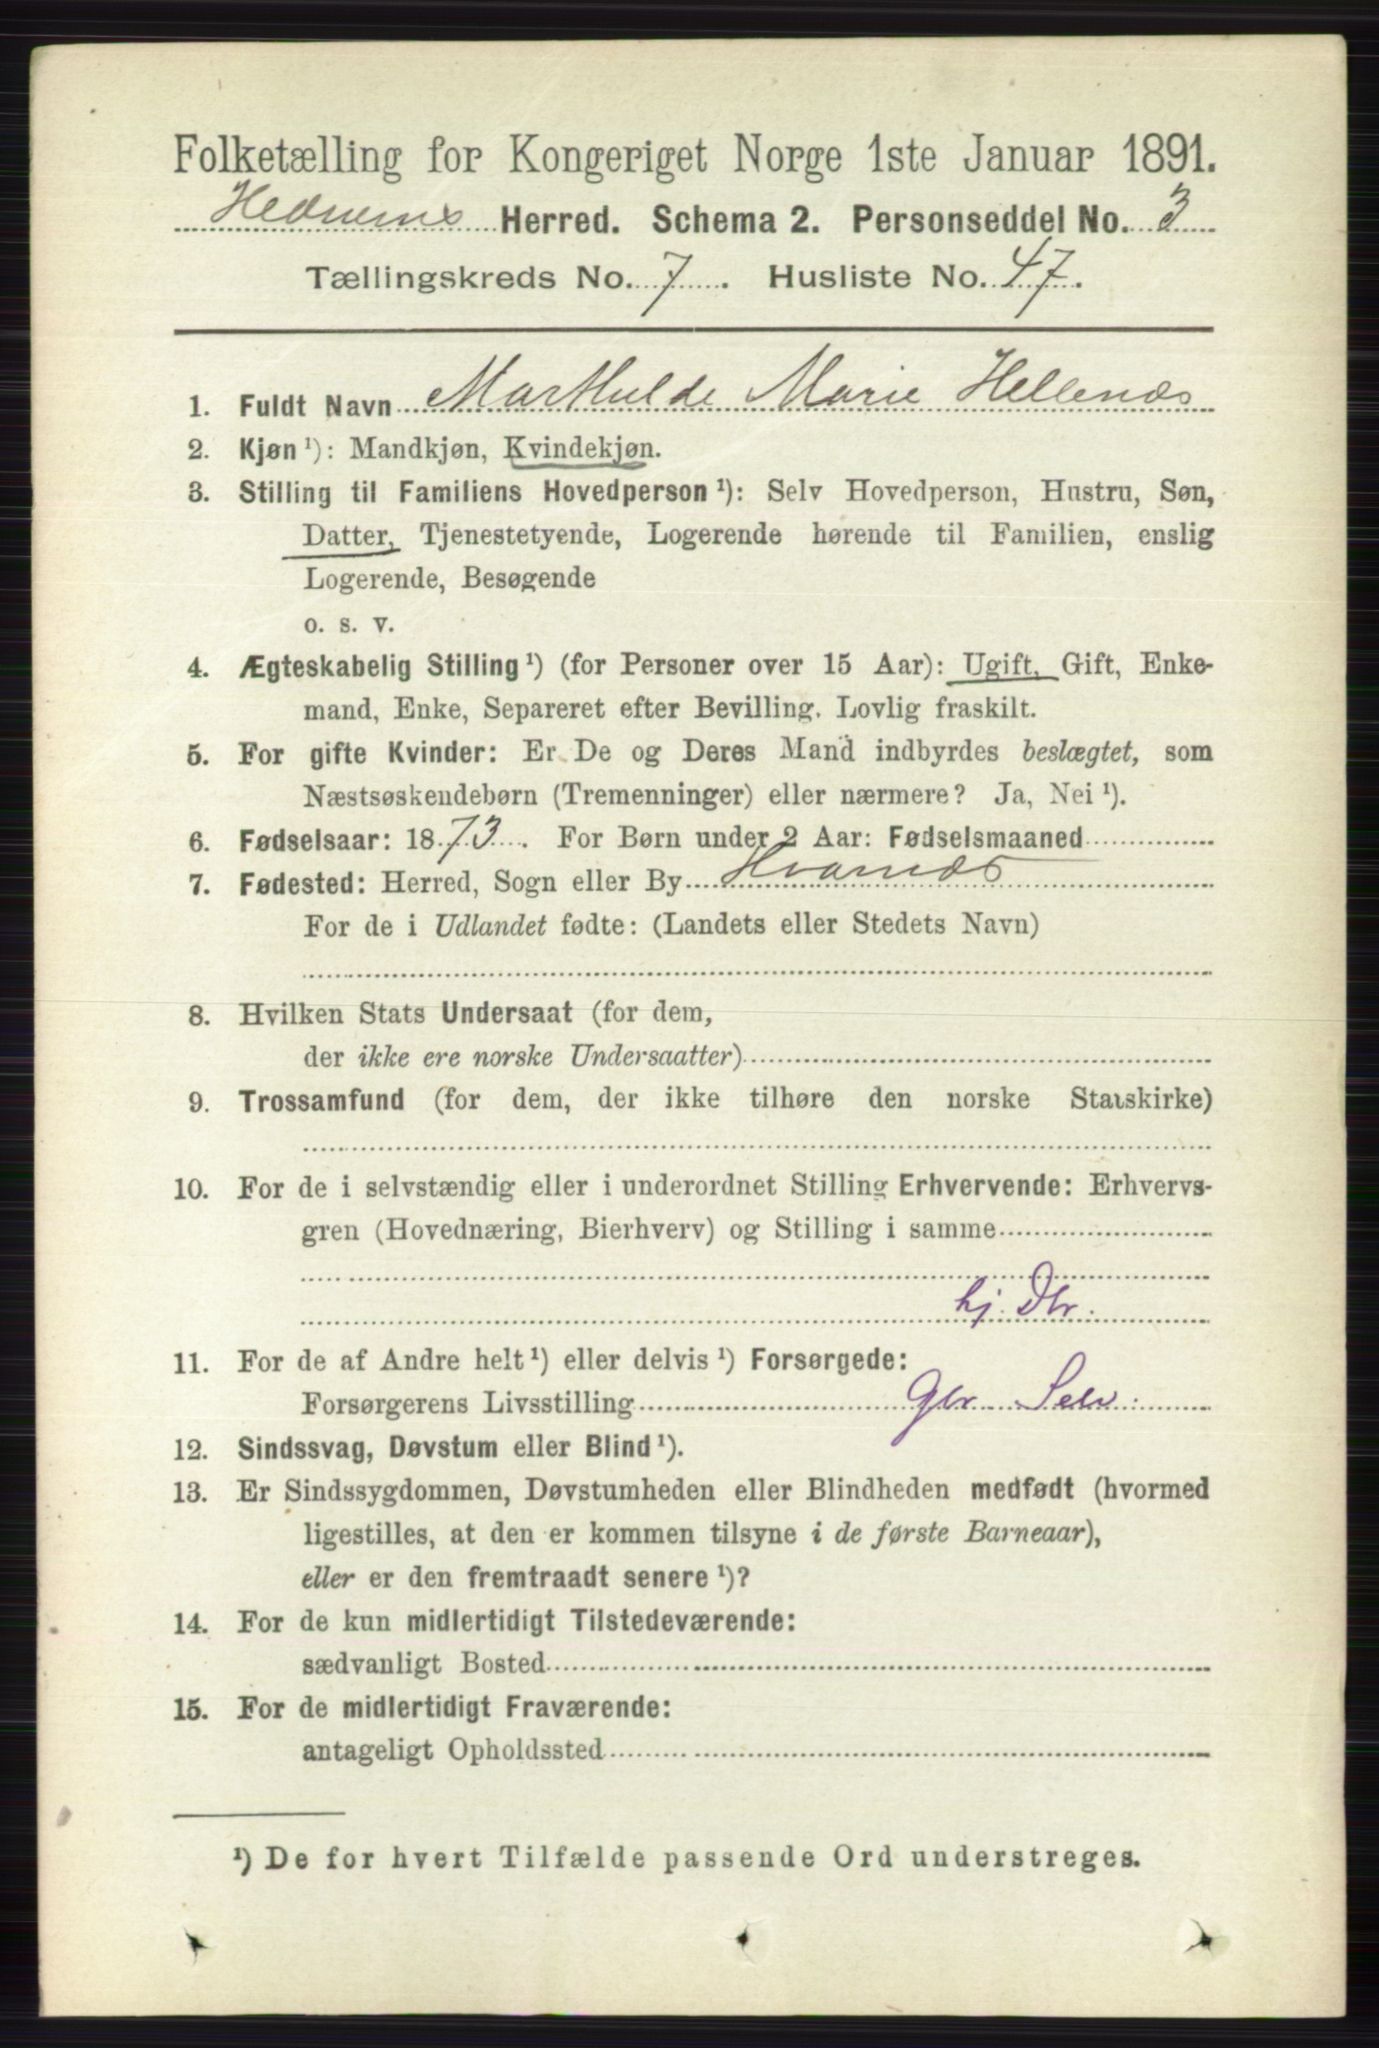 Folketælling for Kongeriget Norge 1ste Januar 1891.
Hedrums Herred. Schema 2. Personseddel No. 3
Tællingskreds No. 7. Husliste No. 47.
1. Fuldt Navn Marthilde Marie Hellenæs
2. Kjøn ¹): Mandkjøn, Kvindekjøn.
3. Stilling til Familiens Hovedperson ¹): Selv Hovedperson, Hustru, Søn,
Datter, Tjenestetyende, Logerende hørende til Familien, enslig
Logerende, Besøgende
o. s. v.
4. Ægteskabelig Stilling ¹) (for Personer over 15 Aar): Ugift, Gift, Enke-
mand, Enke, Separeret efter Bevilling. Lovlig fraskilt.
5. For gifte Kvinder: Er De og Deres Mand indbyrdes beslægtet, som
Næstsøskendebørn (Tremenninger) eller nærmere? Ja, Nei ¹).
6. Fødselsaar: 1873. For Børn under 2 Aar: Fødselsmaaned
7. Fødested: Herred, Sogn eller By Hvarnæs
For de i Udlandet fødte: (Landets eller Stedets Navn)
8. Hvilken Stats Undersaat (for dem,
der ikke ere norske Undersaatter)
9. Trossamfund (for dem, der ikke tilhøre den norske Statskirke)
10. For de i selvstændig eller i underordnet Stilling Erhvervende: Erhvervs-
gren (Hovednæring, Bierhverv) og Stilling i samme
hj. Dtr.
11. For de af Andre helt ¹) eller delvis ¹) Forsørgede:
Forsørgerens Livsstilling Gbr. Selv.
12. Sindssvag, Døvstum eller Blind ¹).
13. Er Sindssygdommen, Døvstumheden eller Blindheden medfødt (hvormed
ligestilles, at den er kommen tilsyne i de første Barneaar),
eller er den fremtraadt senere ¹)?
14. For de kun midlertidigt Tilstedeværende:
sædvanligt Bosted
15. For de midlertidigt Fraværende:
antageligt Opholdssted
¹) De for hvert Tilfælde passende Ord understreges.